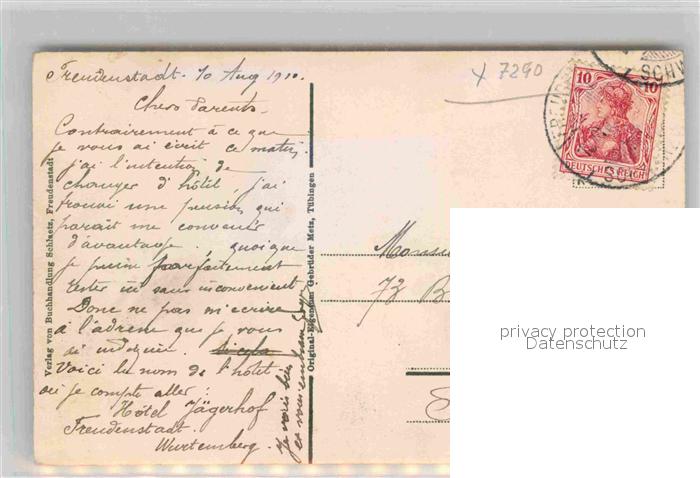 Freudenstadt. 10 Aug 1910.
Chers Parents.
Contrairement à ce que
je vous ai écrit ce matin,
j'ai l'intention de
changer d'hôtel, j'ai
trouvé une pension qui
parait me convenir
d'avantage, quoique
je puisse parfaitement
rester ici sans inconvenient
Donc ne pas m'ecrire
à l'adresse que je vous
ai indiquée.
Voici le nom de l'hôtel
où je compte aller:
Hôtel Jägerhof
Freudenstadt.
Wurtemberg.
Je vais bien
et vous embrasse
Verlag von Buchhandlung Schlaetz, Freudenstadt
Original-Eigentum Gebrüder Metz, Tübingen
x 7290
10 10
DEUTSCHES REICH
SCHW
Monsieu
73 B
privacy protection
Datenschutz